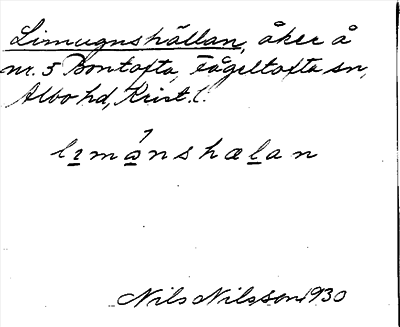 Limugnshällan, åker å
nr. 5 Bontofta, Fågeltofta sn,
Albo hd, Krist. l.
lımə́nshælan
Nils Nilsson 1930